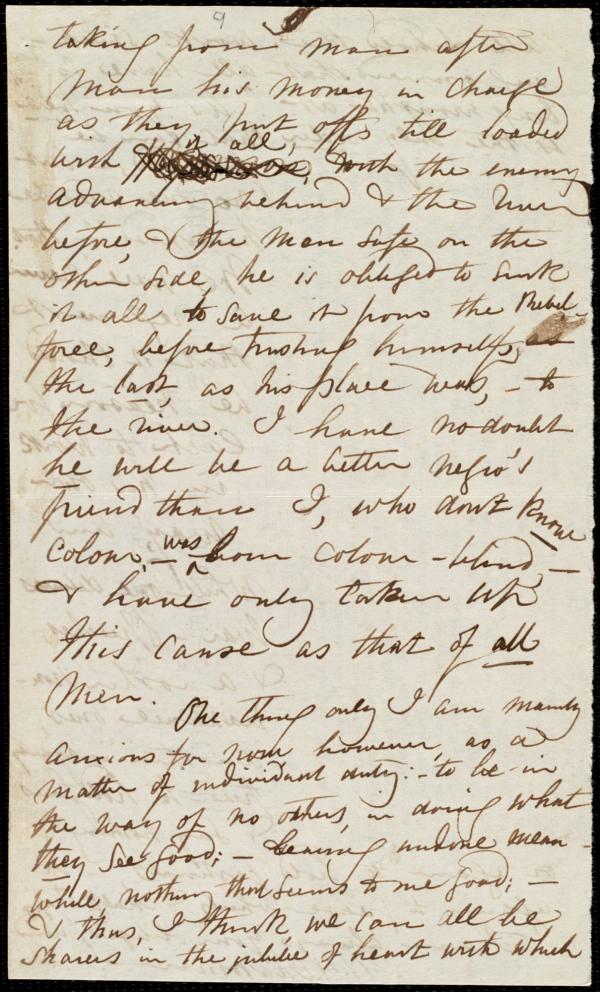 9
taking from man after
man his money in charge
as they put off, till loaded
with it all, with the enemy
advancing behind & the river
before, & the man safe on the
other side, he is obliged to sink
it all to save it from the Rebel-
force, before trusting himself, at
the last, as his place was, - to
the river. I have no doubt
he will be a better negro's
friend than I, who don't know
colour, - was born colour-blind, -
& have only taken up
this cause as that of all
Men.
One thing only I am mainly
anxious for now however, as a
matter of individual duty: - to be in
the way of no others, in doing what
they see good; - leaving undone mean-
while nothing that seems to me good; -
& thus, I think, we can all be
sharers in the jubilee of heart with which